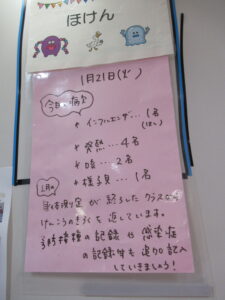 ほけん
1月21日(火)
今日の病気
* インフルエンザ… 1名
* 発熱… 4名
* 咳… 2名
* 様子見… 1名
1月の
身体測定が終ったクラスから
けんこうのきろくを返しています。
予防接種の記録や感染症
の記録等も追加記入
していきましょう!